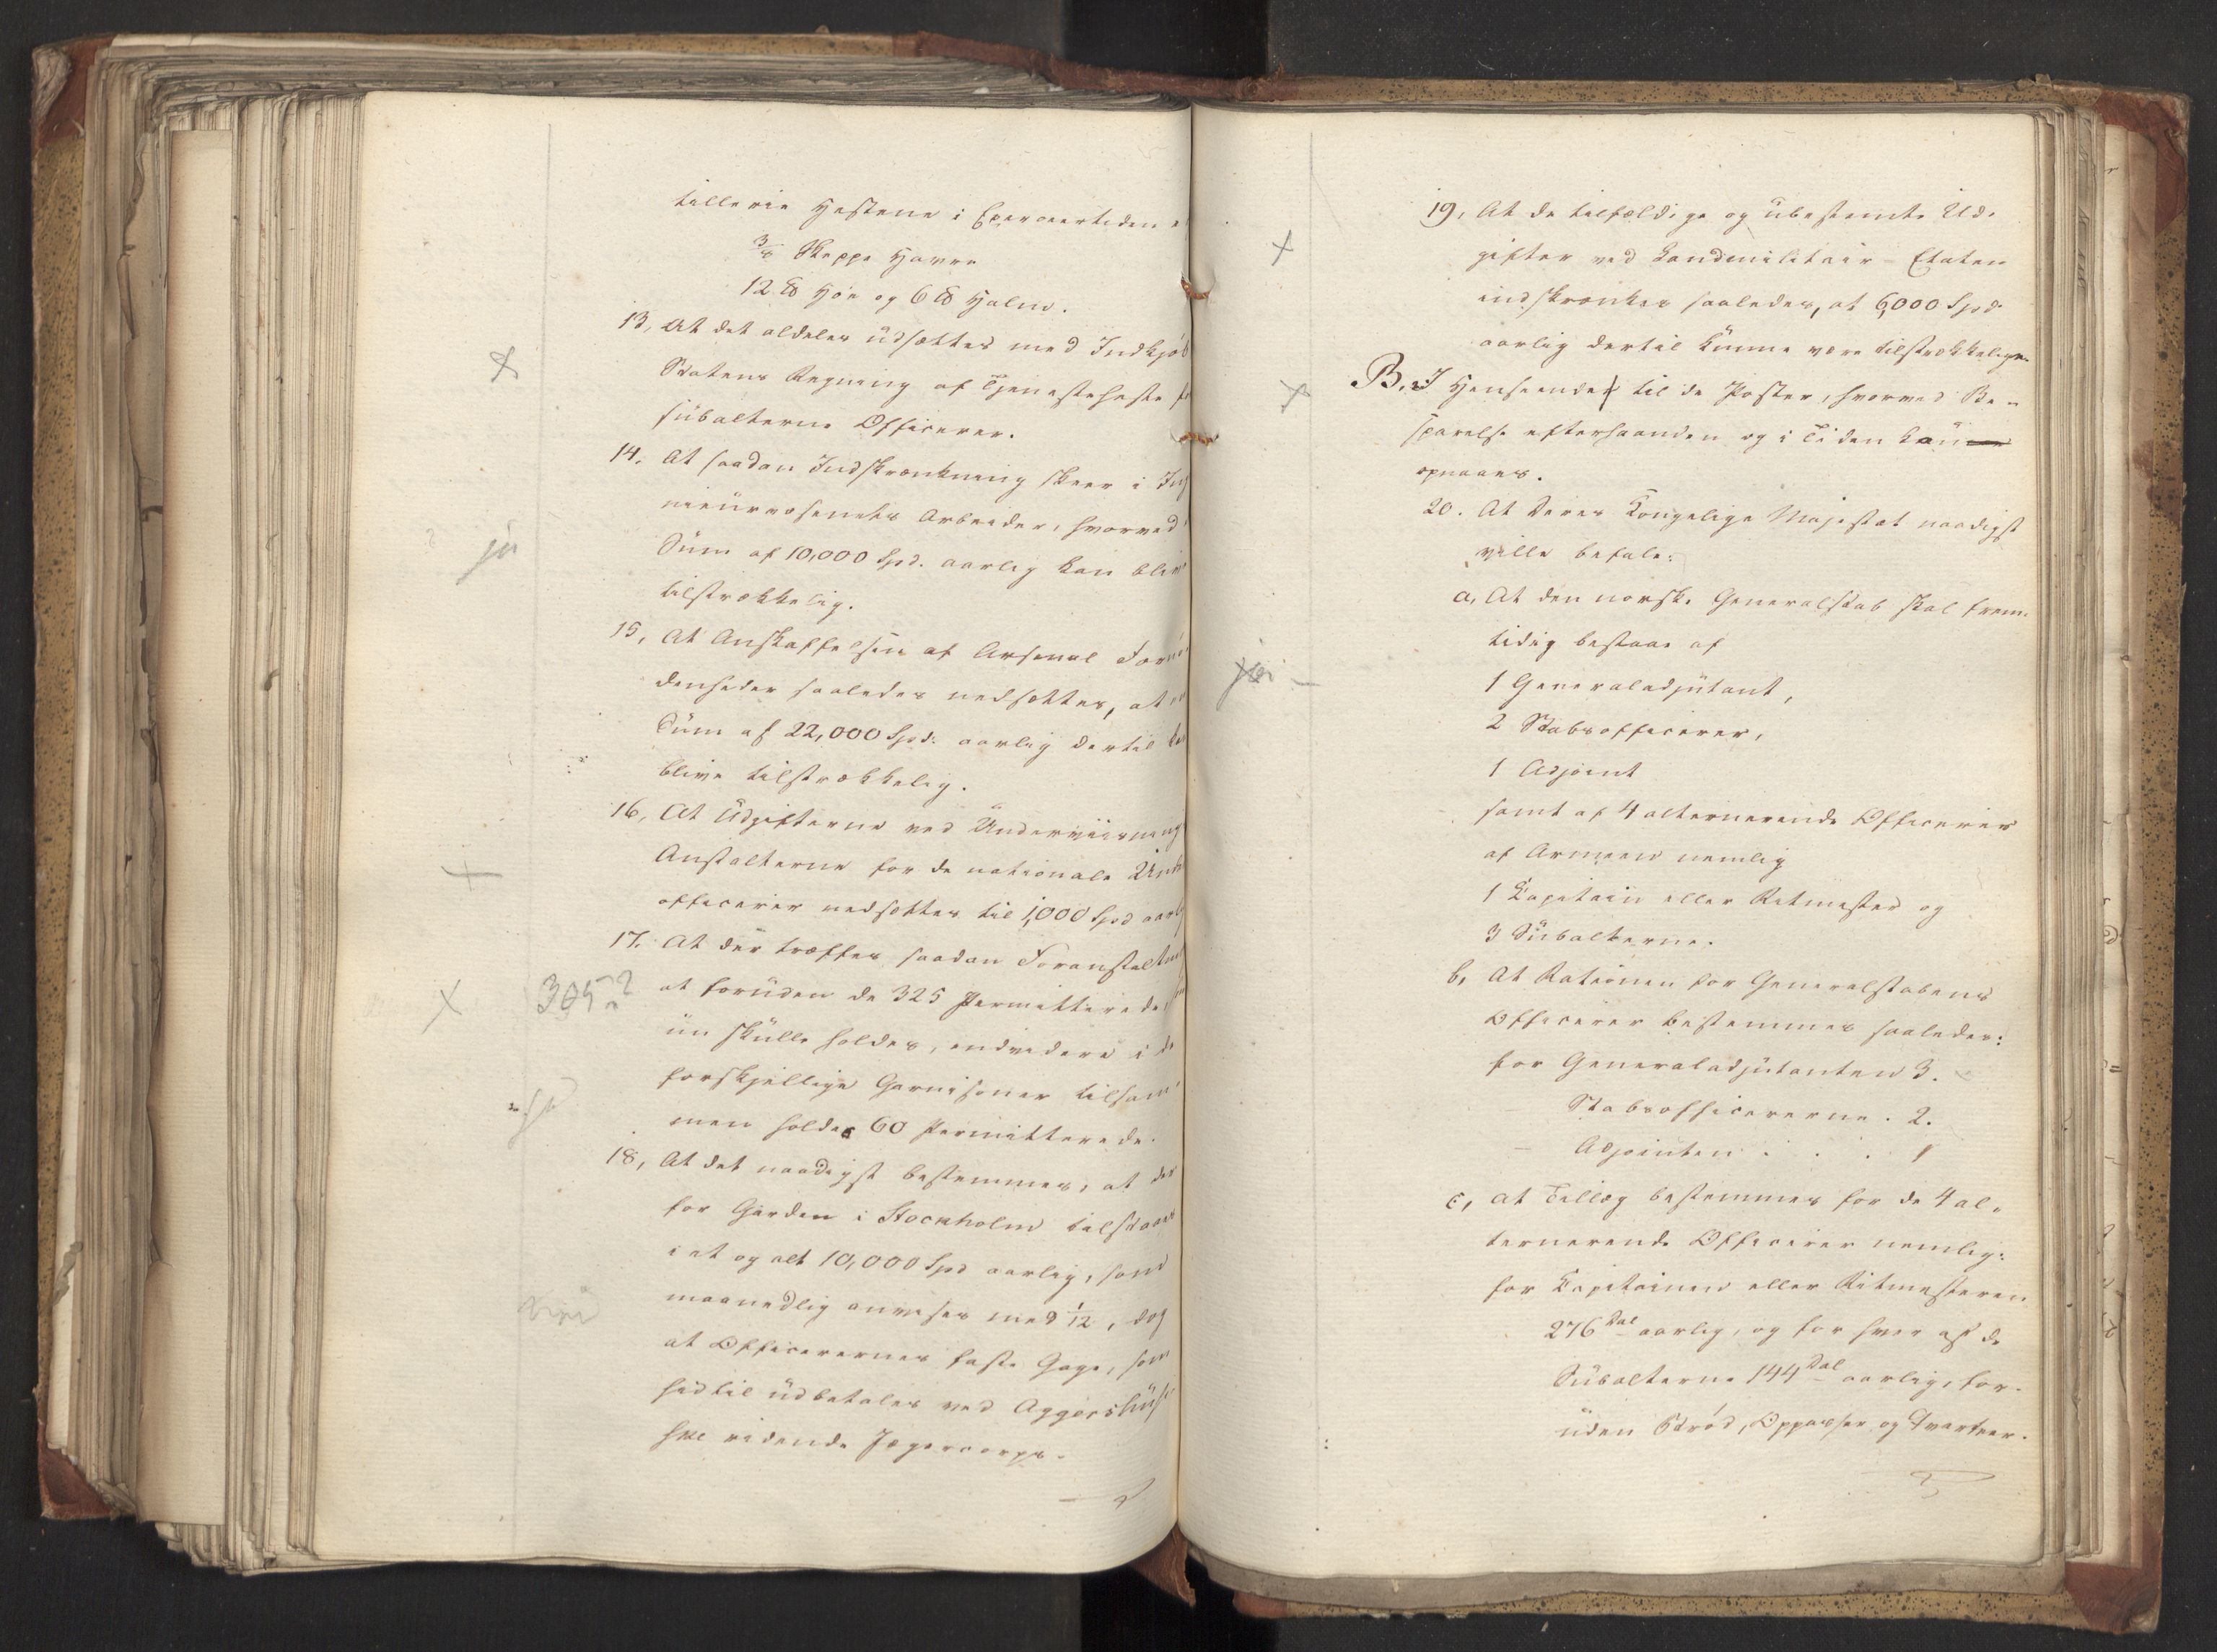 tillerie Hestene i Exerceertiden e
3/8 Skeppe Havre
12 ℔ Høe og 6 ℔ Halm.
13, At det aldeles udsættes med Indkjøb
Statens Regning af Tjenesteheste f
subalterne Officerer.
14. At saadan Indskrænkning skeer i Ing
nieurvæsenets Arbeider, hvorved
ja
Sum af 10,000 Spd. aarlig kan bliv
tilstrækkelig.
15, At Anskaffelsen af Arsenal Forn
denheder saaledes nedsættes, at en
Sum af 22,000 Spd. aarlig dertil k
blive tilstrækkelig.
16, At Udgifterne ved Underviisning
Anstalterne for de nationale Und
officerer nedsættes til 1,000 Spd aarl
17. At der træffes saadan Foranstaltn
305?
at foruden de 325 Permitterede,
nu skulle holdes, endvidere i de
forskjellige Garnisoner tilsam
ja
men holdes 60 Permitterede.
18, At det naadigst bestemmes, at der
for Garden i Stockholm tilstaaes
i et og alt 10,000 Spd aarlig, som
maanedlig anvises med 1/12, dog
at Officerernes faste Gage, som
hidtil udbetales ved Aggershus
ske ridende Jægercorps.
19, At de tilfældige og ubestemte Ud-
gifter ved Landmilitair-Etaten
indskrænkes saaledes, at 6,000 Spd
aarlig dertil kunne være tilstrækkelige.
B, I Henseende til de Poster, hvorved Be-
sparelse efterhaanden og i Tiden kan
opnaaes.
20. At Deres Kongelige Majestæt naadigst
ville befale:
a, At den norske Generalstab skal frem-
tidig bestaae af
1 Generaladjutant,
2 Stabsofficerer,
1 Adjoint
samt af 4 alternerende Officerer
af Armeen nemlig
1 Capitain eller Ritmester og
3 Subalterne.
b, At Rationen for Generalstabens
Officerer bestemmes saaledes:
for Generaladjutanten 3.
– Stabsofficererne . 2.
– Adjointen . . . 1
c, at Tillæg bestemmes for de 4 al-
ternerende Officerer nemlig:
for Capitainen eller Ritmesteren
276 Dal aarlig, og for hver af de
Subalterne 144 Dal aarlig, for-
uden Brød, Oppasser og Qvarteer.